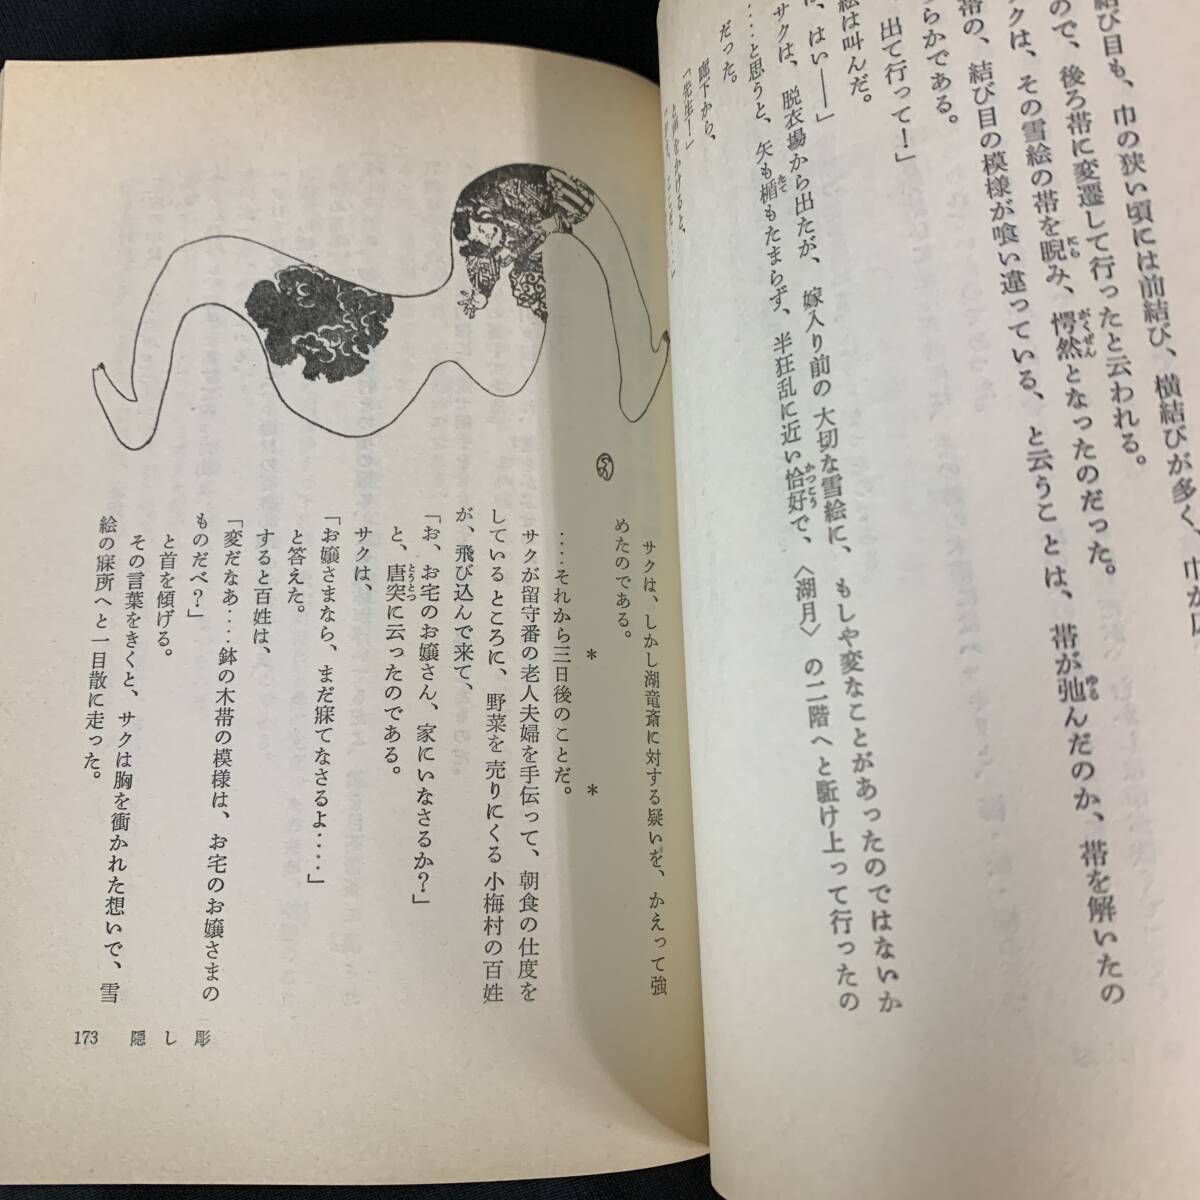 結び目も、巾の狭い頃には前結び、横結びが多く、巾が広
ので、後ろ帯に変遷して行ったと云われる。
クは、その雪絵の帯を睨み、愕然となったのだった。
帯の、結び目の模様が喰い違っている、と云うことは、帯が弛んだのか、帯を解いたの
らかである。
、出て行って！」
絵は叫んだ。
、はい――」
サクは、脱衣場から出たが、嫁入り前の大切な雪絵に、もしや変なことがあったのではないか
‥‥と思うと、矢も楯もたまらず、半狂乱に近い恰好で、〈湖月〉の二階へと駈け上って行ったの
だった。
廊下から、
「先生！」
と声をかけると、
サクは、しかし湖竜斎に対する疑いを、かえって強
めたのである。
＊　＊
‥‥それから三日後のことだ。
サクが留守番の老人夫婦を手伝って、朝食の仕度を
しているところに、野菜を売りにくる小梅村の百姓
が、飛び込んで来て、
「お、お宅のお嬢さん、家にいなさるか？」
と、唐突に云ったのである。
サクは、
「お嬢さまなら、まだ寐てなさるよ‥‥」
と答えた。
すると百姓は、
「変だなあ‥‥鉢の木帯の模様は、お宅のお嬢さまの
ものだべ？」
と首を傾げる。
その言葉をきくと、サクは胸を衝かれた想いで、雪
絵の寐所へと一目散に走った。
173　隠し彫